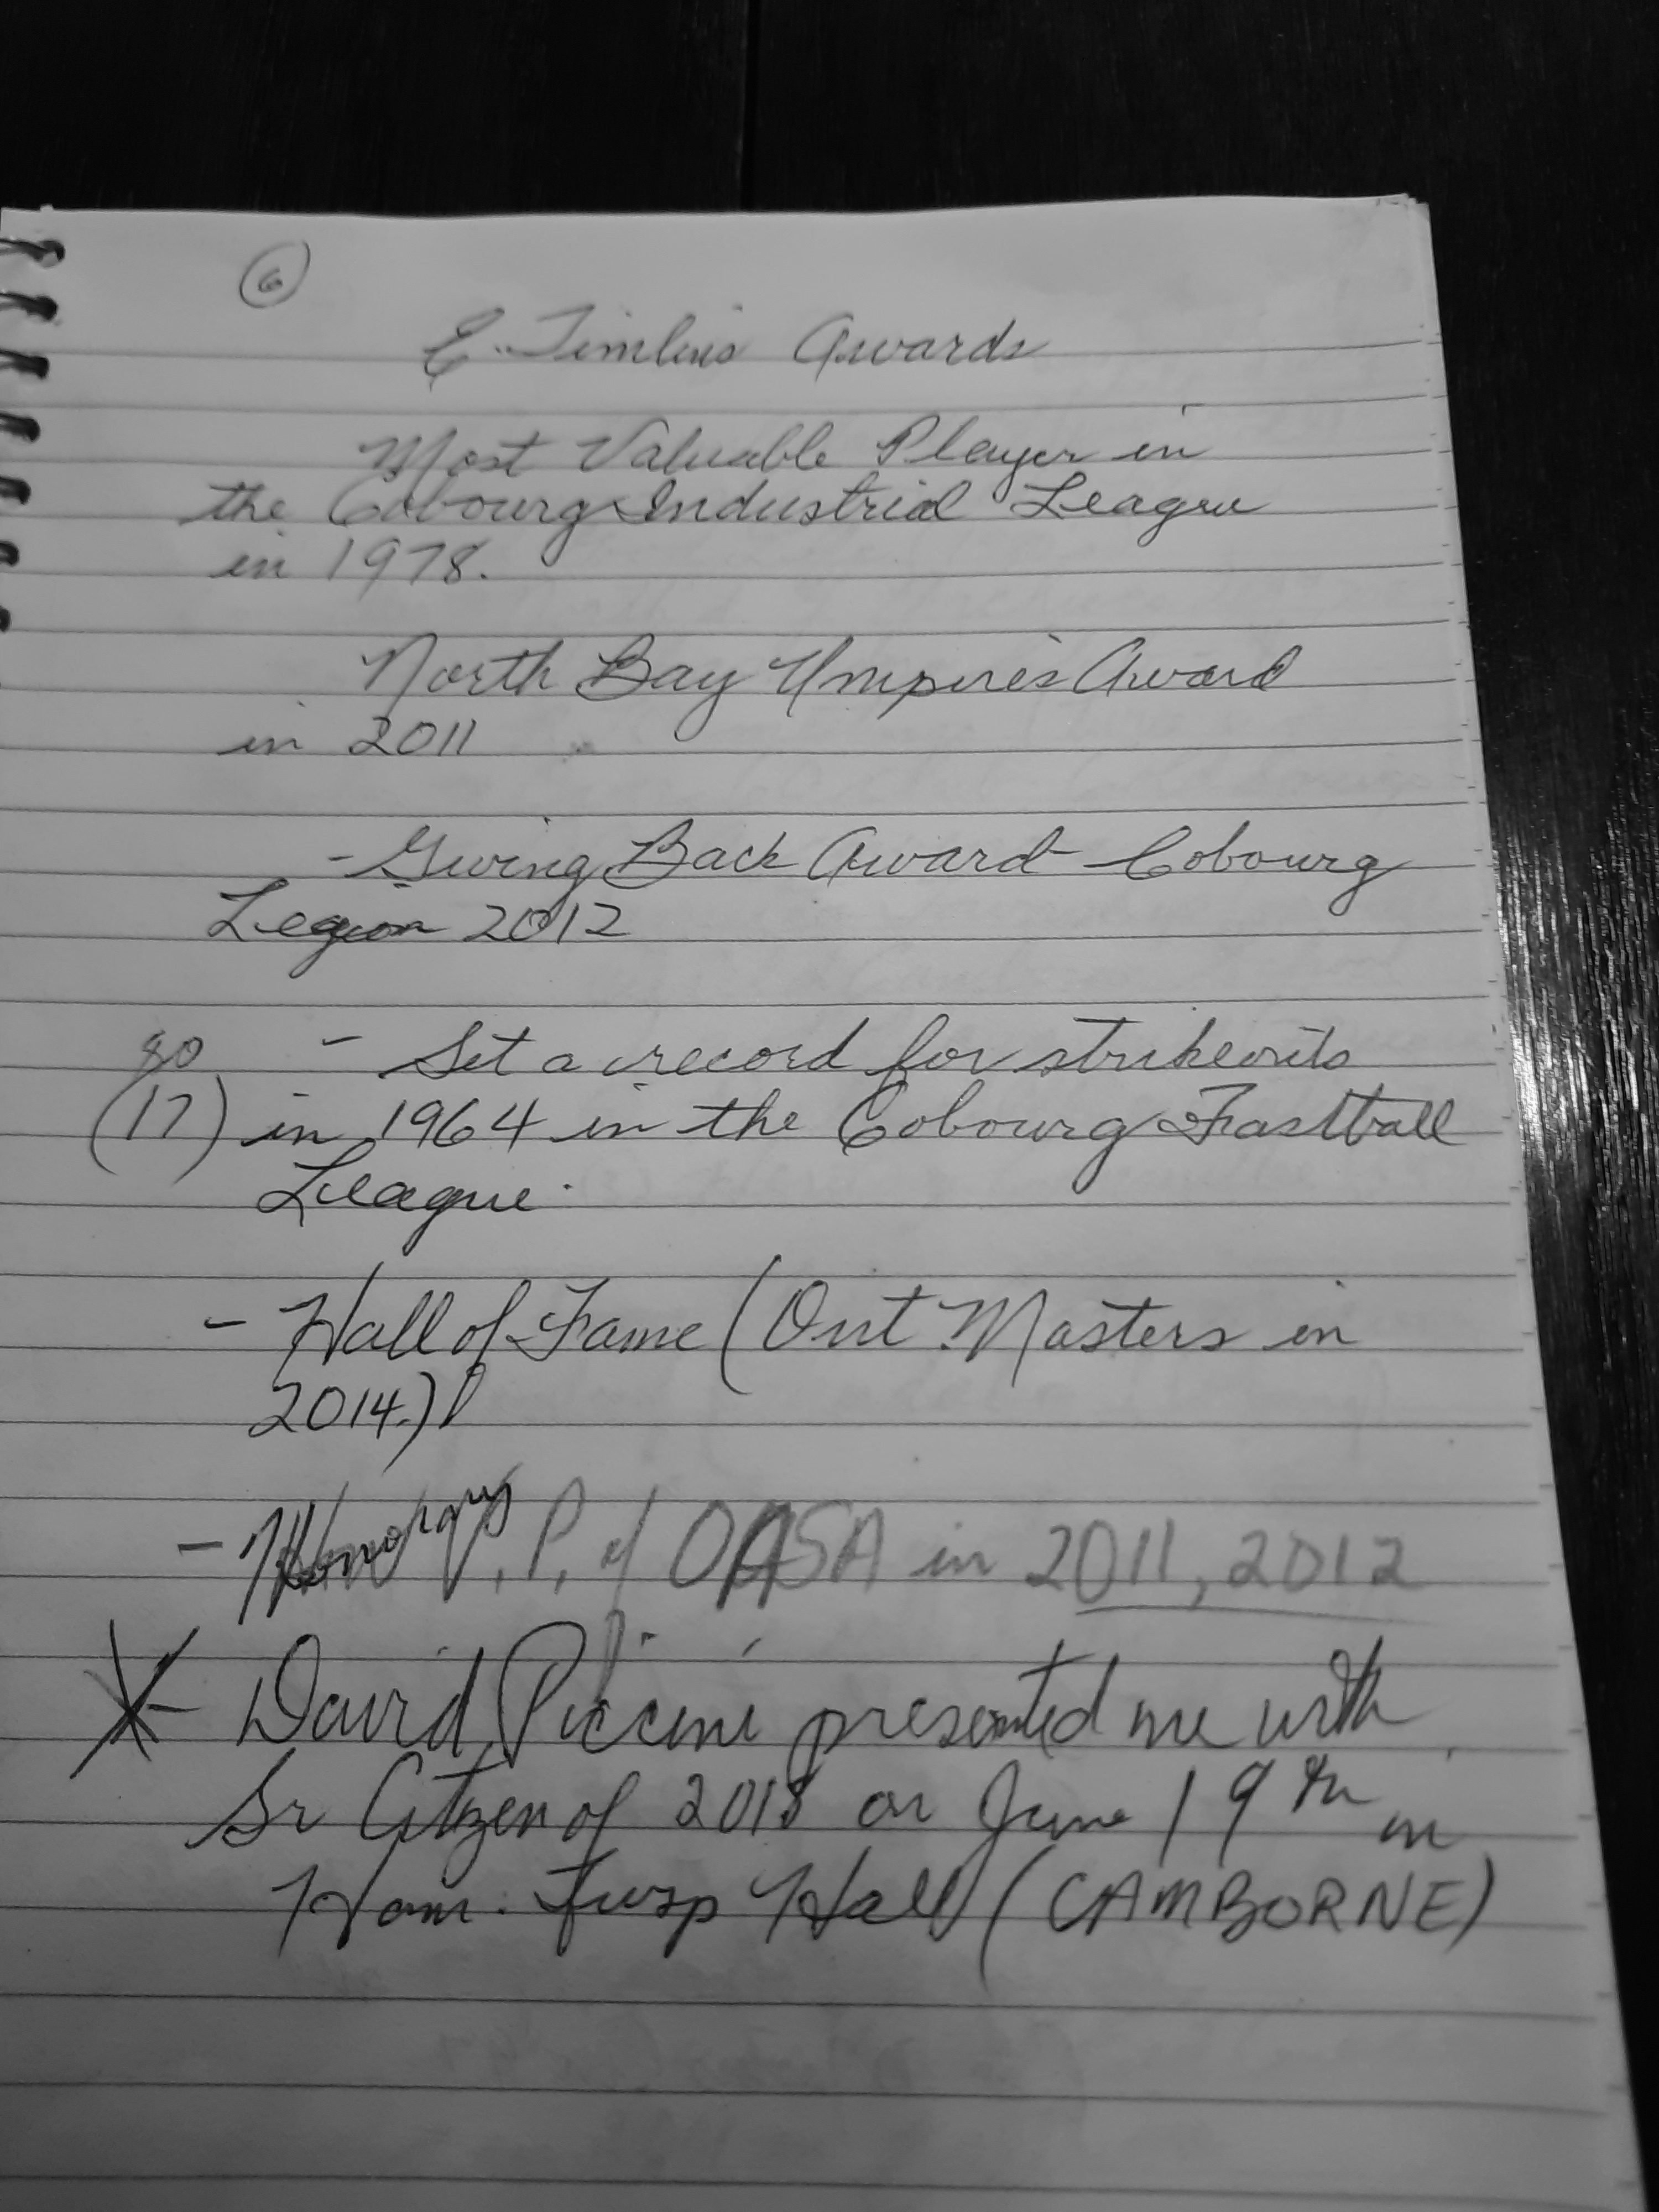 6
E. Timlins Awards
Most Valuable Player in
the Cobourg Industrial League
in 1978.
North Bay Umpire's Award
in 2011
- Giving Back Award - Cobourg
Legion 2012
80 - Set a record for strikeouts
(17) in 1964 in the Cobourg Fastball
League.
- Hall of Fame (Ont Masters in
2014.)
- Honorary V.P. of OASA in 2011, 2012
- David Piccini presented me with
Sr Citizen of 2018 on June 19th in
Ham. Twsp Hall (CAMBORNE)